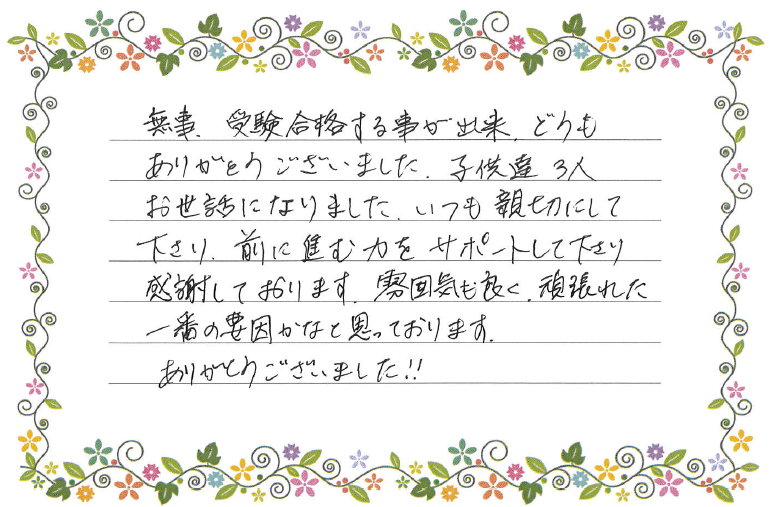 無事、受験合格する事が出来、どうも
ありがとうございました。子供達 3人
お世話になりました。いつも親切にして
下さり、前に進む力をサポートして下さり
感謝しております。雰囲気も良く、頑張れた
一番の要因かなと思っております。
ありがとうございました!!